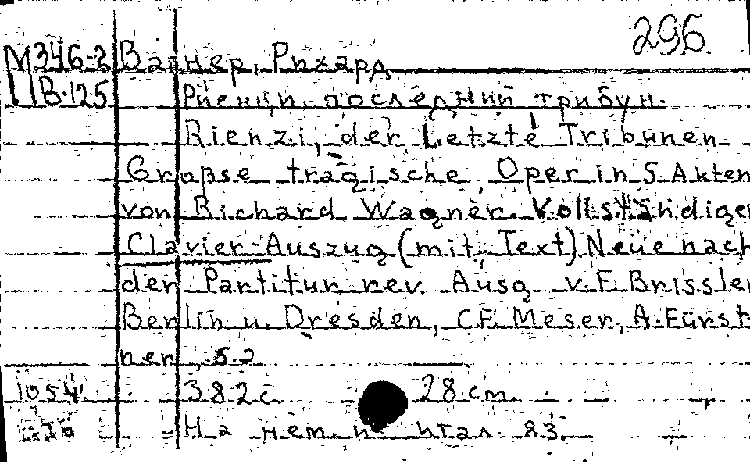 296
М346-2 Вагнер, Рихард
IIВ-125 Риенци, последний трибун.
Rienzi, der Letzte Tribunen
Grosse tragische Oper in 5 Akten
von Richard Wagner. Vollständiger
Clavier-Auszug (mit Text) Neue nach
der Partitur rev. Ausg v. F. Brissler
Berlin u. Dresden, C.F. Meser, A. Fürst-
ner, s.a
1054 382 с. 28 см.
На нем. и итал. яз.